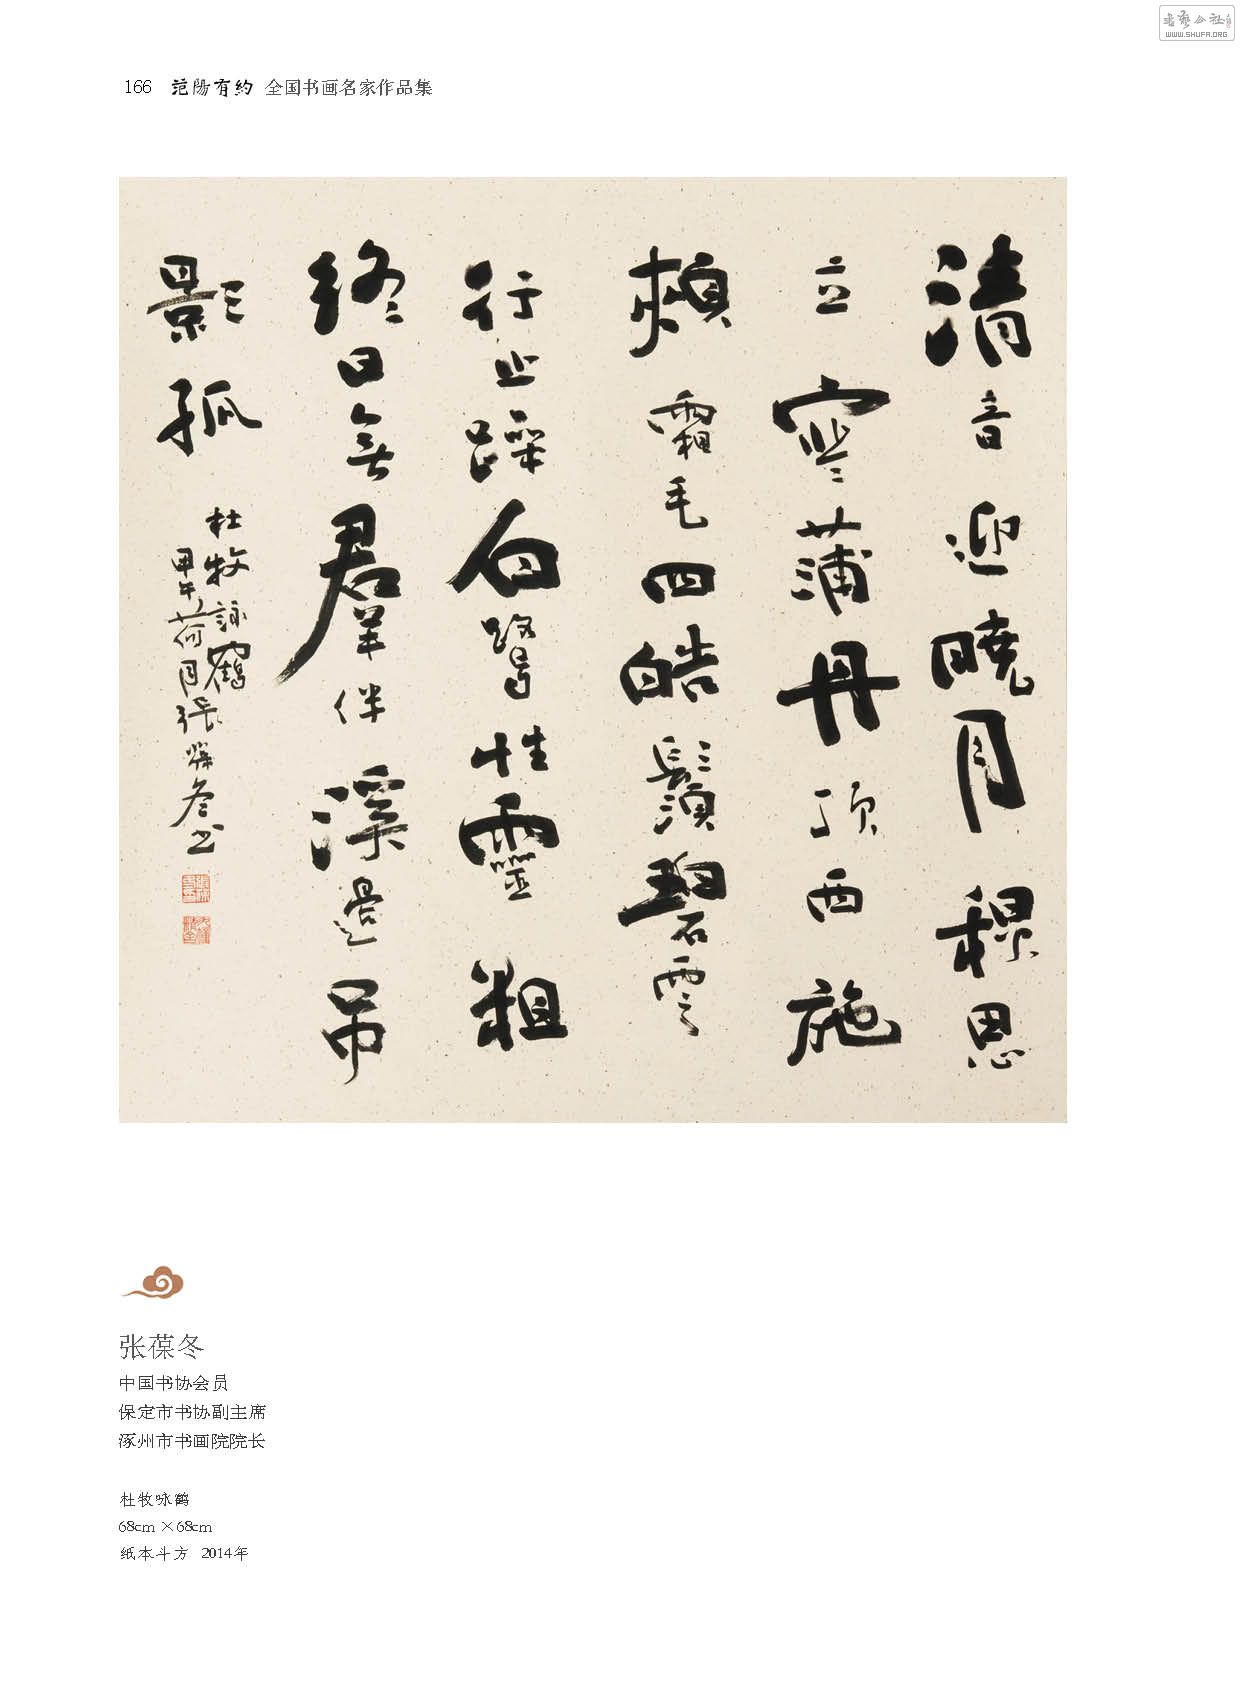 书艺公社
WWW.SHUFA.ORG
166 范陽有約 全国书画名家作品集
清音迎曉月思
立寒蒲丹頂西施
頰霜毛四皓鬚碧雲
行止躁白鷺性靈粗
終日無羣伴溪邊吊
影孤
杜牧詠鶴
甲午荷月張葆冬书
张葆冬
中国书协会员
保定市书协副主席
涿州市书画院院长
杜牧咏鹤
68cm×68cm
纸本斗方 2014年